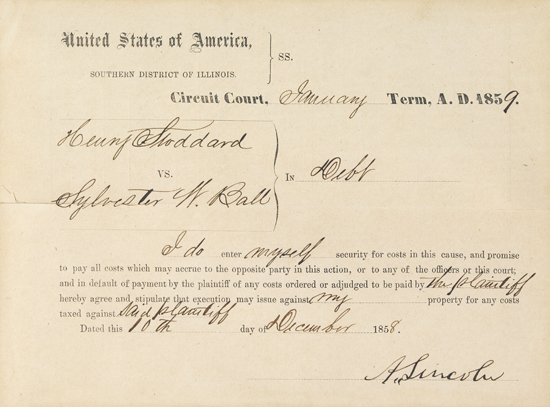 United States of America,
SS.
SOUTHERN DISTRICT OF ILLINOIS.
Circuit Court, January Term, A. D. 1859.
Henry Stoddard
VS.
In Debt
Sylvester W. Ball
I do enter myself security for costs in this cause, and promise
to pay all costs which may accrue to the opposite party in this action, or to any of the officers of this court;
and in default of payment by the plaintiff of any costs ordered or adjudged to be paid by the plaintiff
hereby agree and stipulate that execution may issue against my property for any costs
taxed against said plaintiff
Dated this 10th day of December 1858.
A. Lincoln